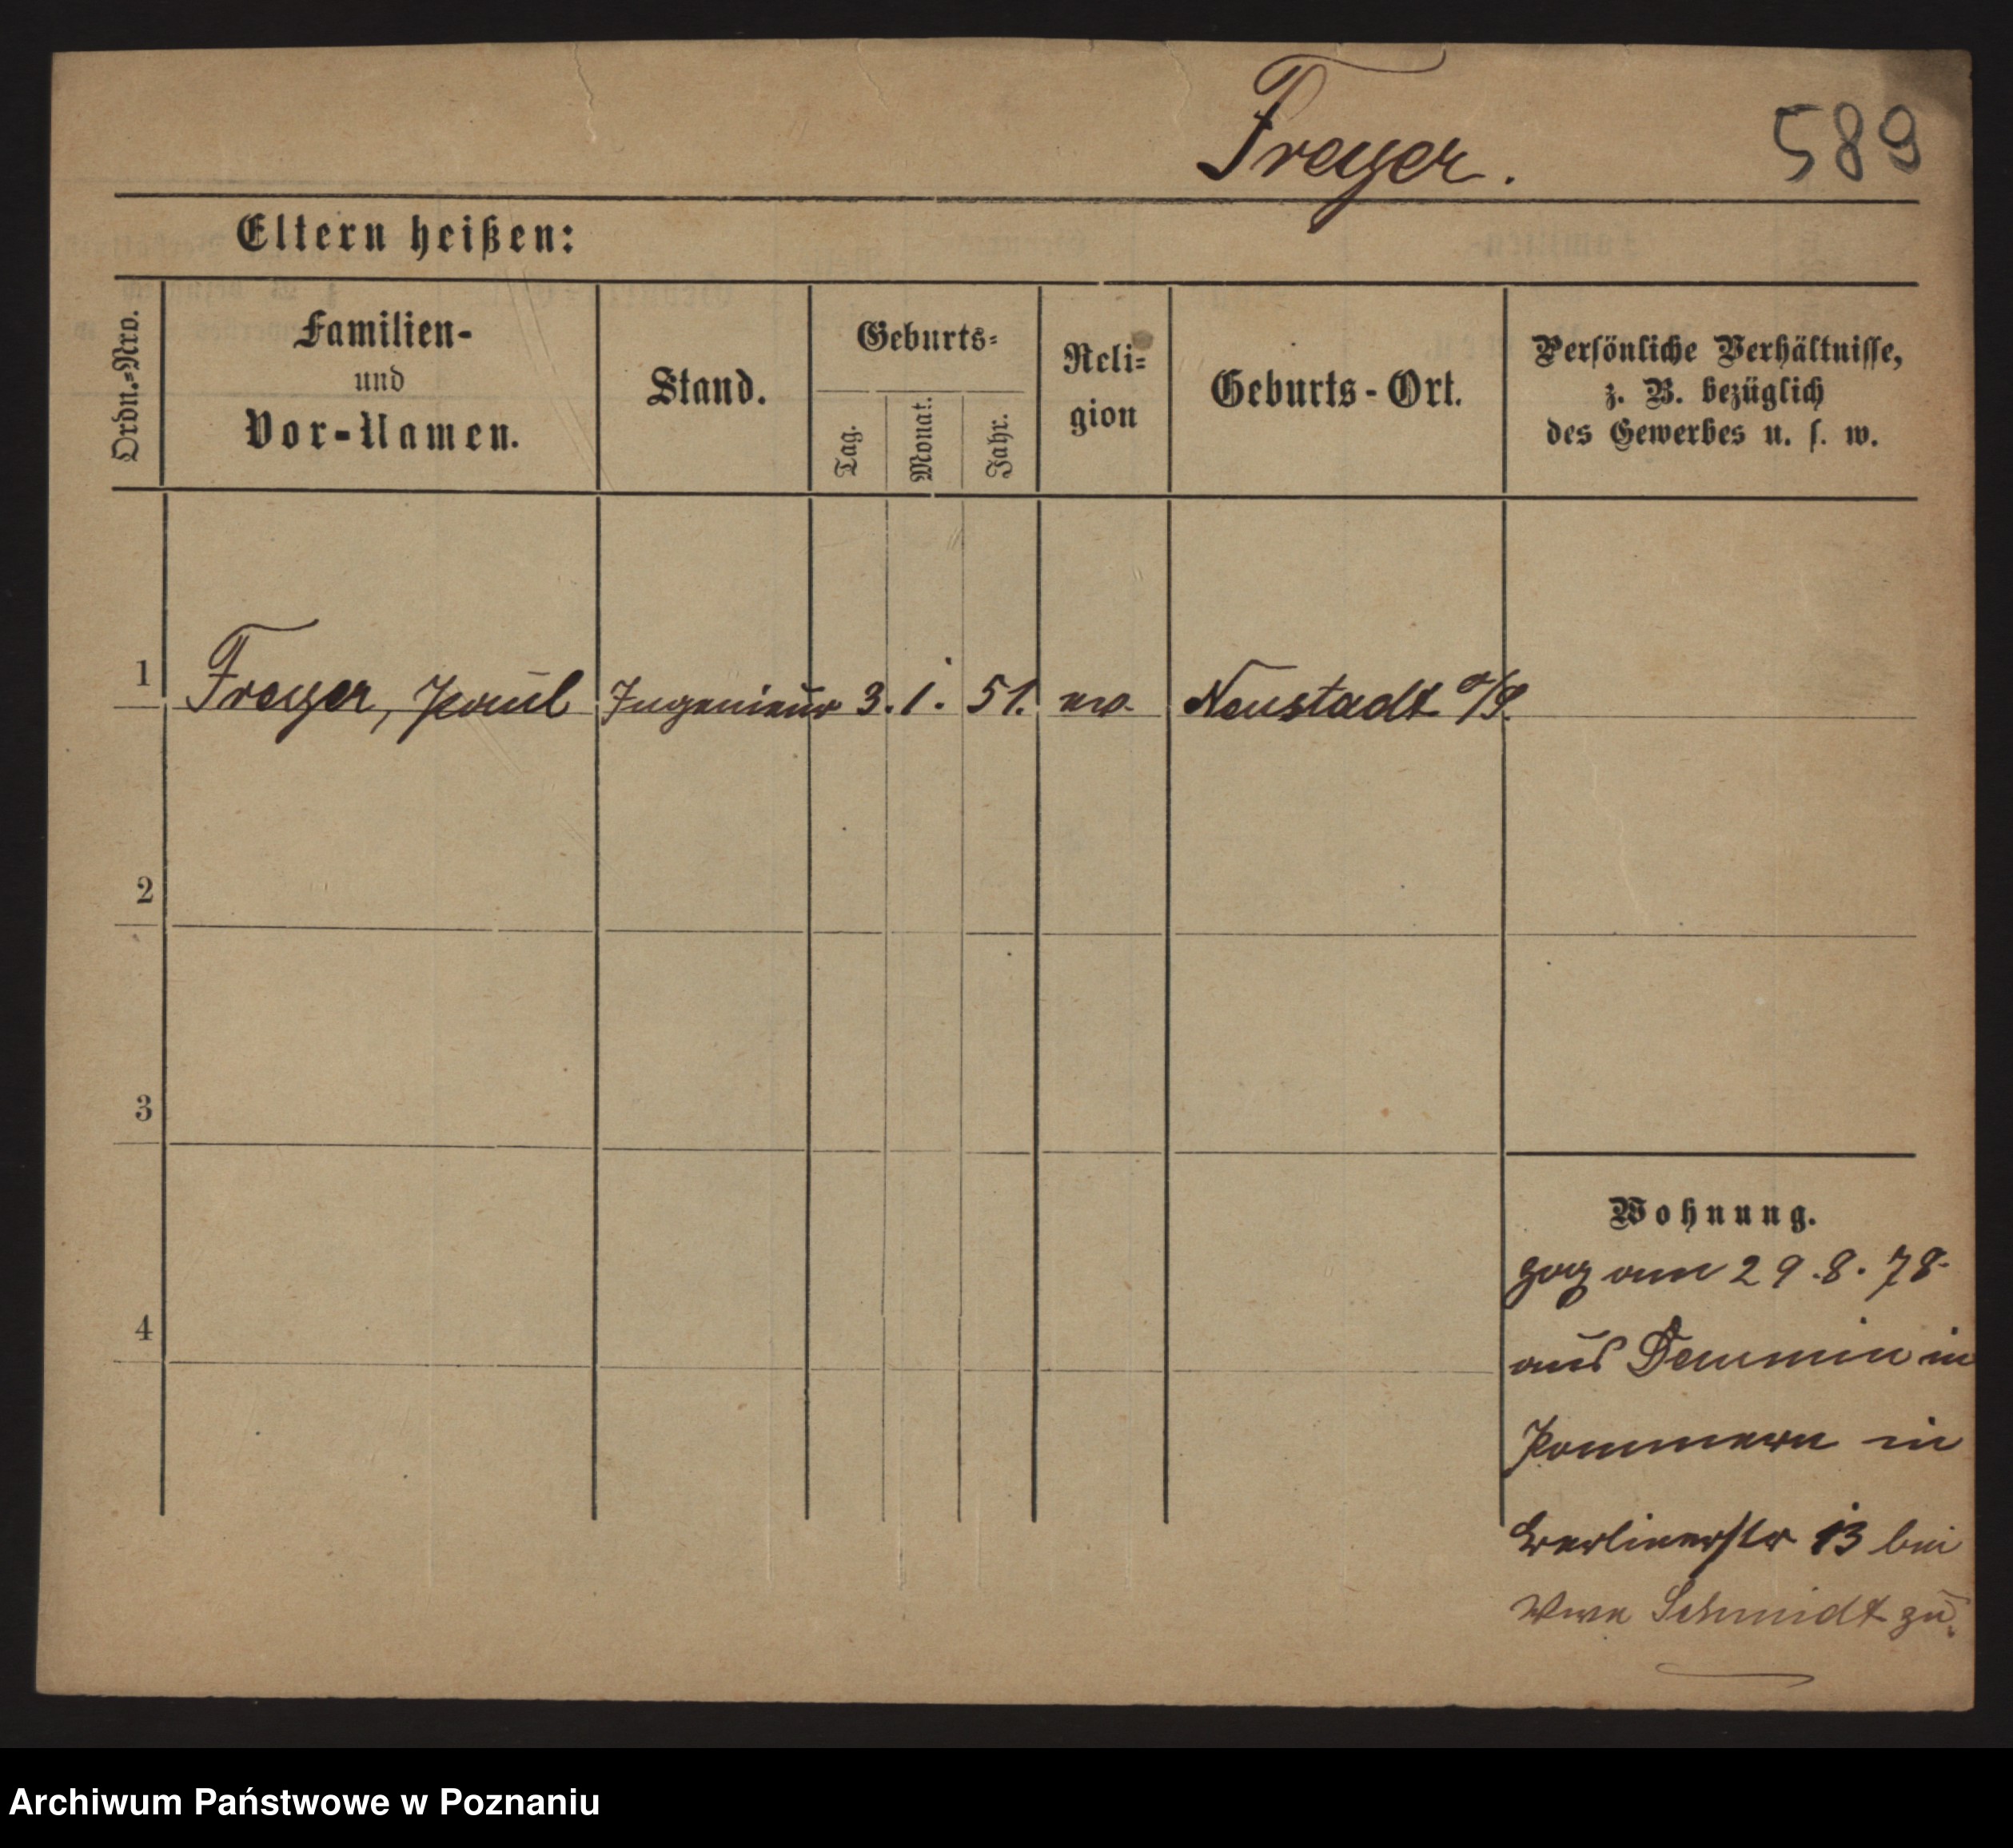 Freyer.
589
Eltern heißen:
Ordn.-Nro.
Familien-
und
Vor-Namen.
Stand.
Geburts-
Tag.
Monat.
Jahr.
Reli-
gion
Geburts-Ort.
Persönliche Verhältnisse,
z. B. bezüglich
des Gewerbes u. s. w.
1 Freyer, Paul Ingenieur 3. 1. 51. ev. Neustadt o/S.
2
3
4
Wohnung.
zog am 29.8.78.
aus Demmin in
Pommern in
Berlinerstr 13 bei
Wwe Schmidt zu.
Archiwum Państwowe w Poznaniu